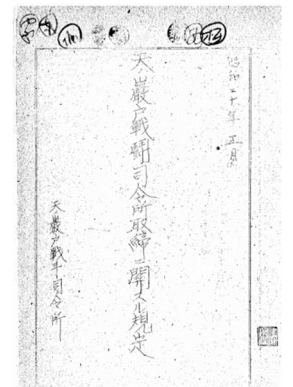 昭和二十年 五月
天巌戸戦闘司令所取締ニ関スル規定
天巌戸戦斗司令所